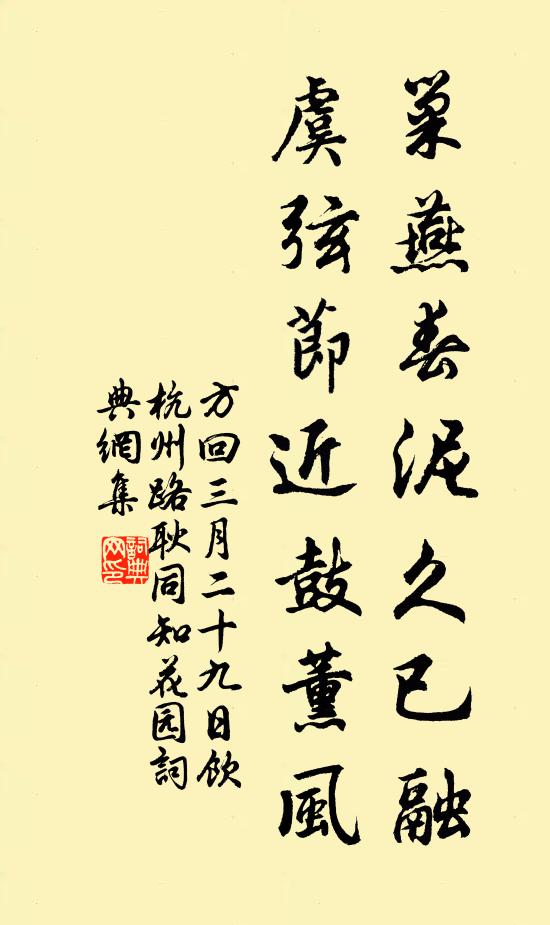 巢燕春泥久已融
虞弦節近鼓薰風
方回三月二十九日飲
杭州路耿同知花园詞
典網集
詞典
网印